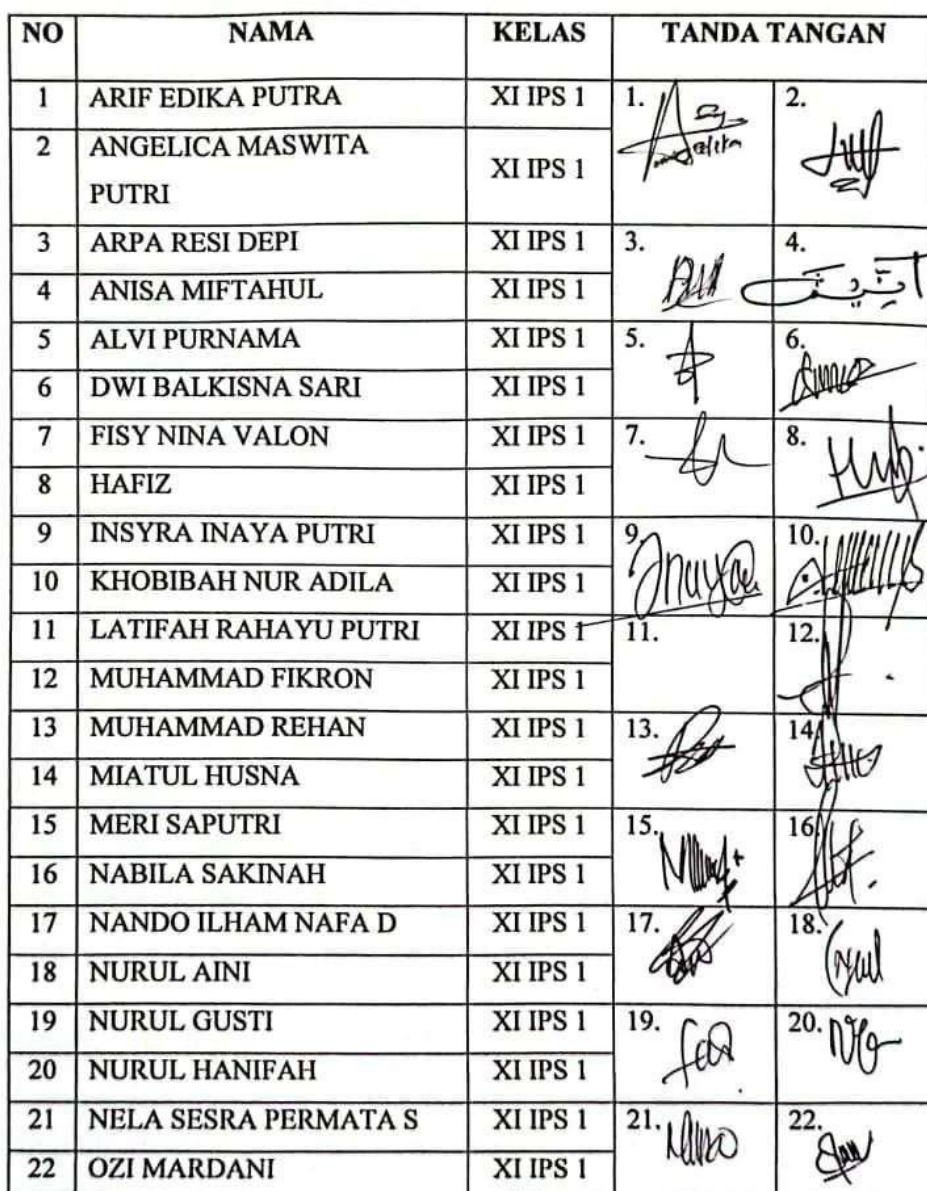 NO NAMA KELAS TANDA TANGAN
1 ARIF EDIKA PUTRA XI IPS 1 1. 2.
2 ANGELICA MASWITA
PUTRI XI IPS 1
3 ARPA RESI DEPI XI IPS 1 3. 4.
4 ANISA MIFTAHUL XI IPS 1
5 ALVI PURNAMA XI IPS 1 5. 6.
6 DWI BALKISNA SARI XI IPS 1
7 FISY NINA VALON XI IPS 1 7. 8.
8 HAFIZ XI IPS 1
9 INSYRA INAYA PUTRI XI IPS 1 9. 10.
10 KHOBIBAH NUR ADILA XI IPS 1 Inaya
11 LATIFAH RAHAYU PUTRI XI IPS 1 11. 12.
12 MUHAMMAD FIKRON XI IPS 1
13 MUHAMMAD REHAN XI IPS 1 13. 14.
14 MIATUL HUSNA XI IPS 1
15 MERI SAPUTRI XI IPS 1 15. 16.
16 NABILA SAKINAH XI IPS 1
17 NANDO ILHAM NAFA D XI IPS 1 17. 18.
18 NURUL AINI XI IPS 1
19 NURUL GUSTI XI IPS 1 19. 20.
20 NURUL HANIFAH XI IPS 1
21 NELA SESRA PERMATA S XI IPS 1 21. 22.
22 OZI MARDANI XI IPS 1